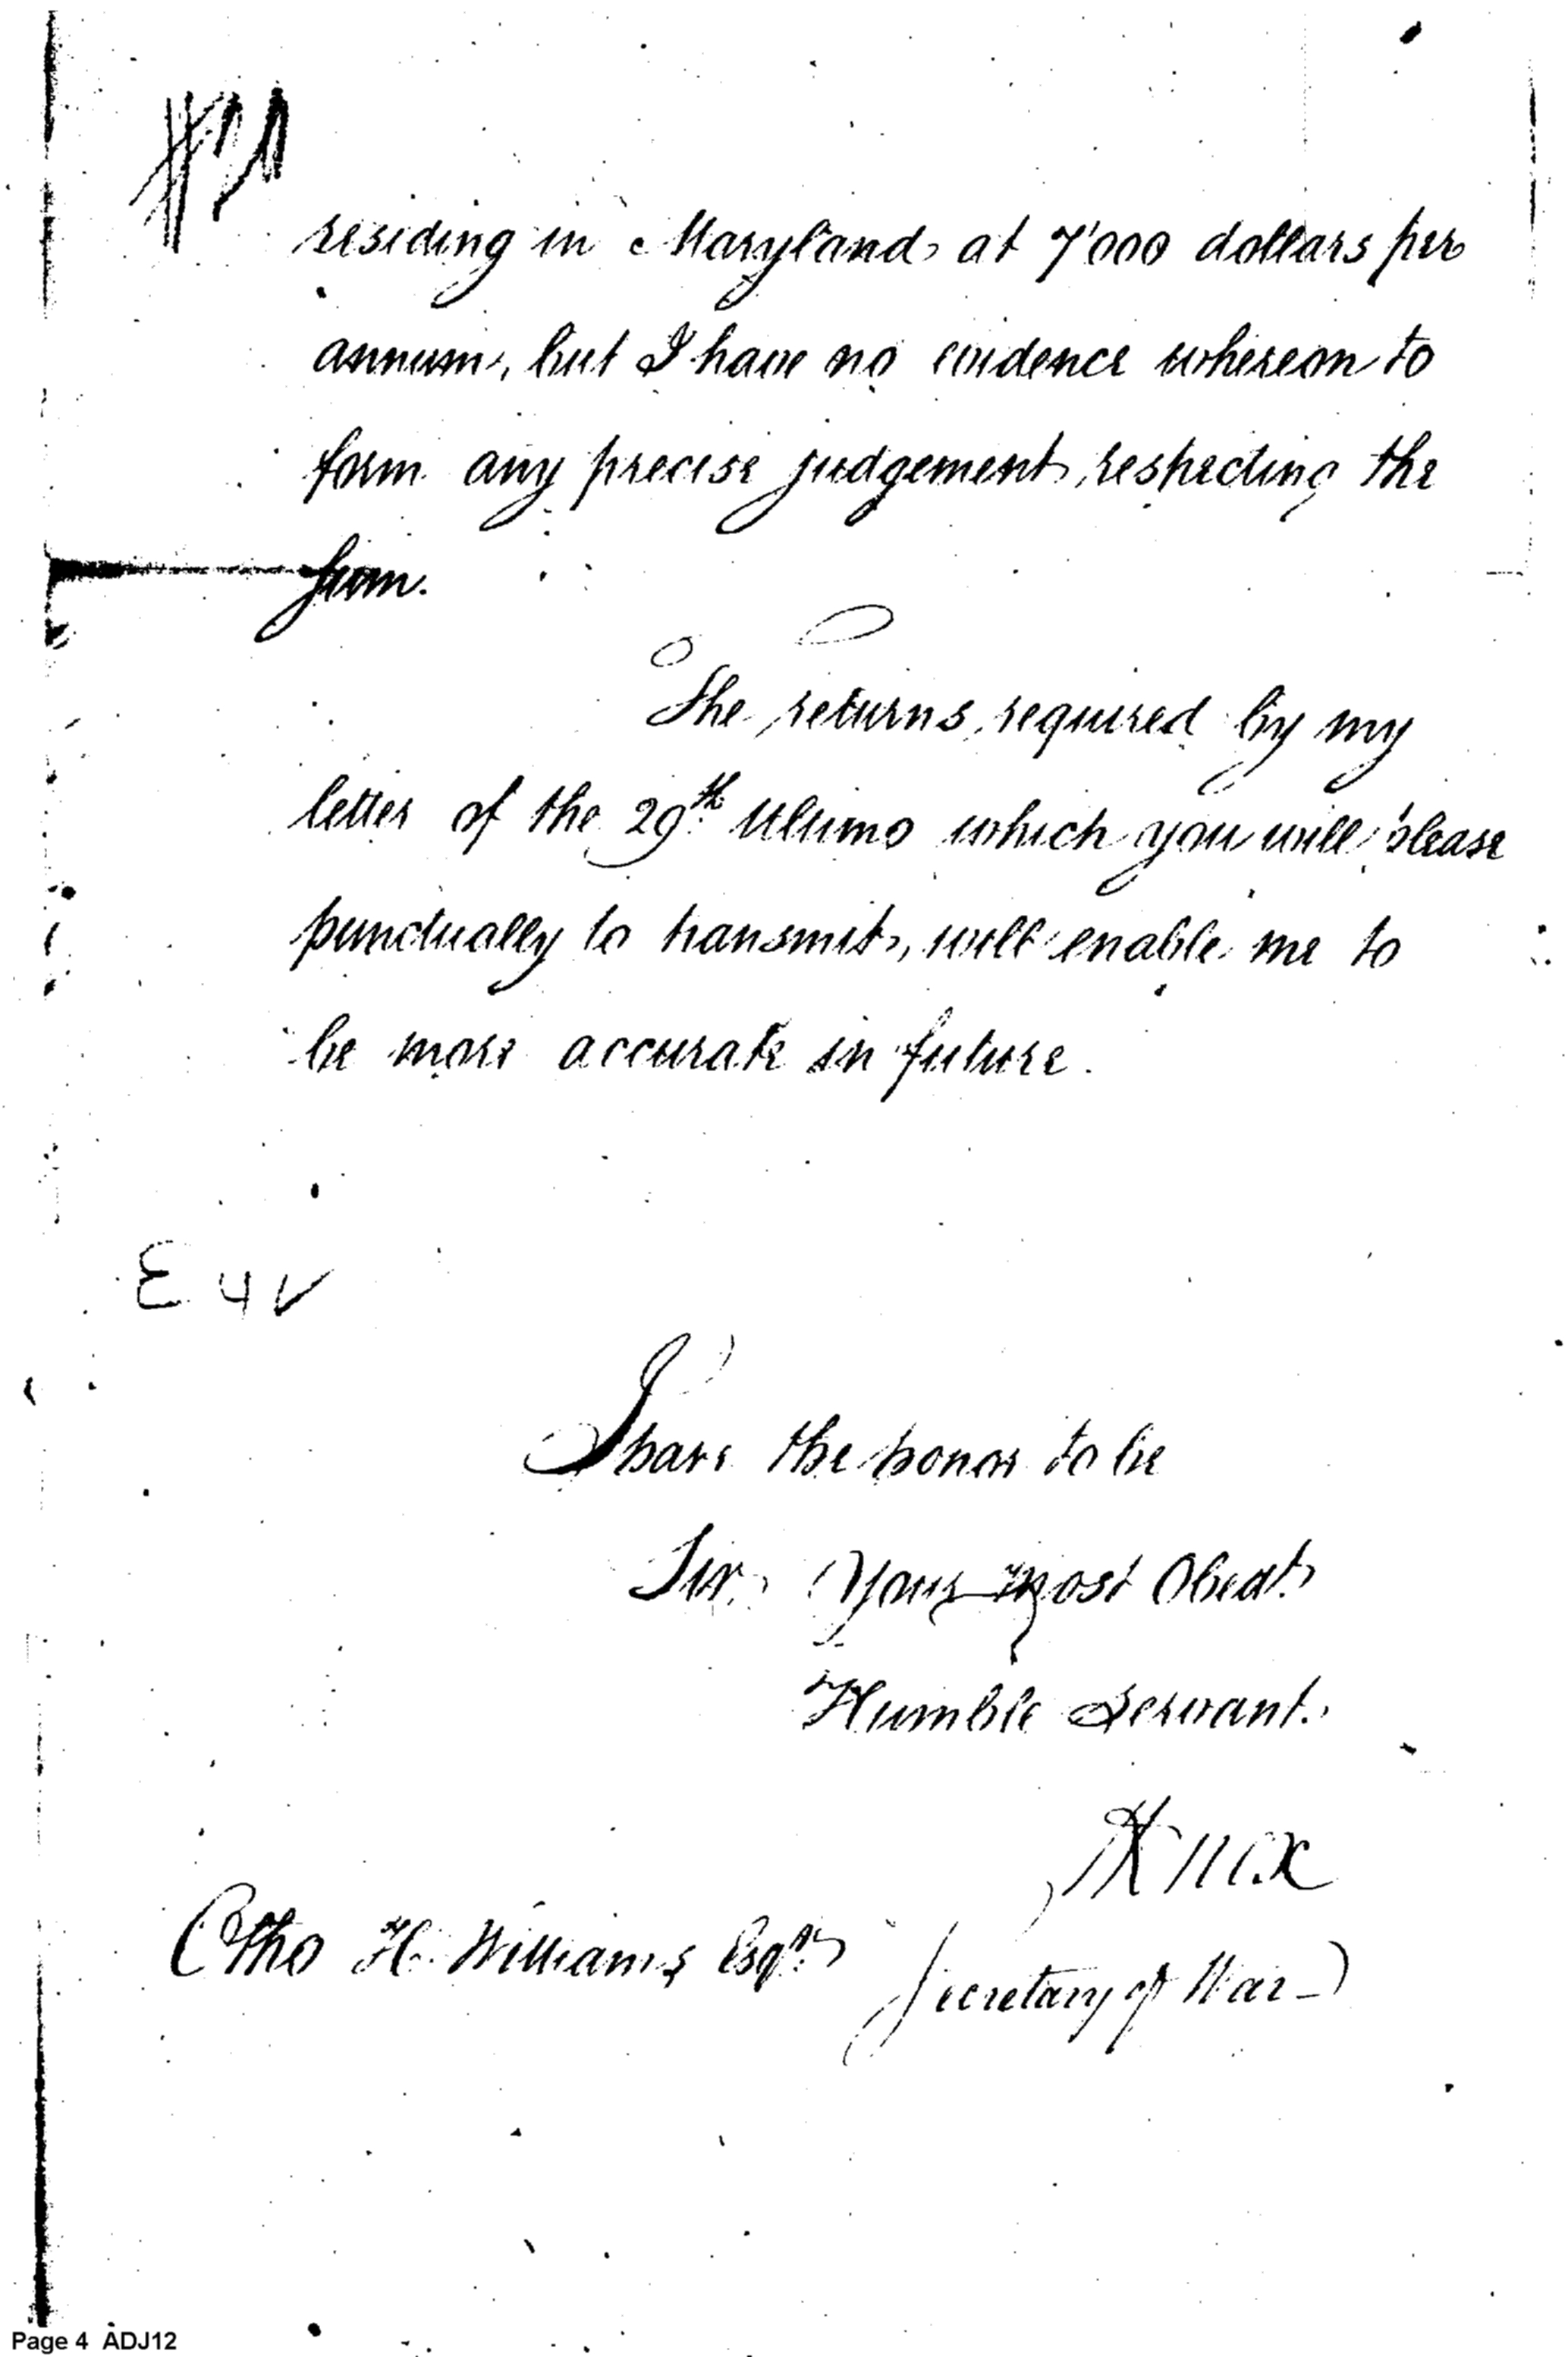 residing in Maryland at 7'000 dollars per
annum, but I have no evidence whereon to
form any precise judgement respecting the
sum.
The returns required by my
letter of the 29th Ultimo which you will please
punctually to transmit, will enable me to
be more accurate in future.
I have the honor to be
Sir Your most Obedt.
Humble Servant.
HKnox
Otho H. Williams Esqr.
Secretary of War
Page 4 ADJ12